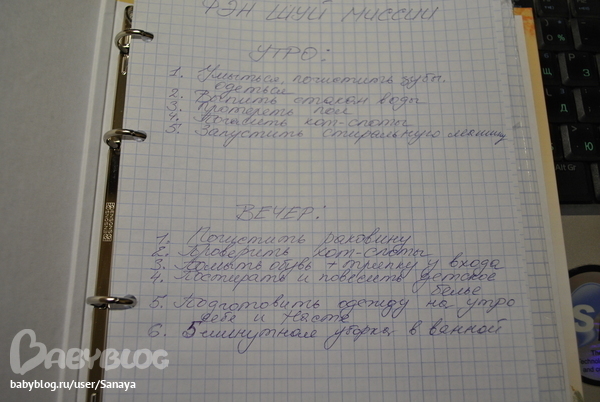 ФЭН ШУЙ МИССИИ
УТРО:
1. Умыться, почистить зубы.
одеться
2. Выпить стакан воды
3. Протереть пол
4. хот-споты
5. Запустить стиральную машину
ВЕЧЕР:
1. Почистить раковину
2. Проверить хот-споты
3. Помыть обувь + тряпку у входа
4. Постирать и повесить детское
белье
5. Подготовить одежду на утро
себе и Насте
6. 5-минутная уборка в ванной
BABYBLOG
babyblog.ru/user/Sanaya